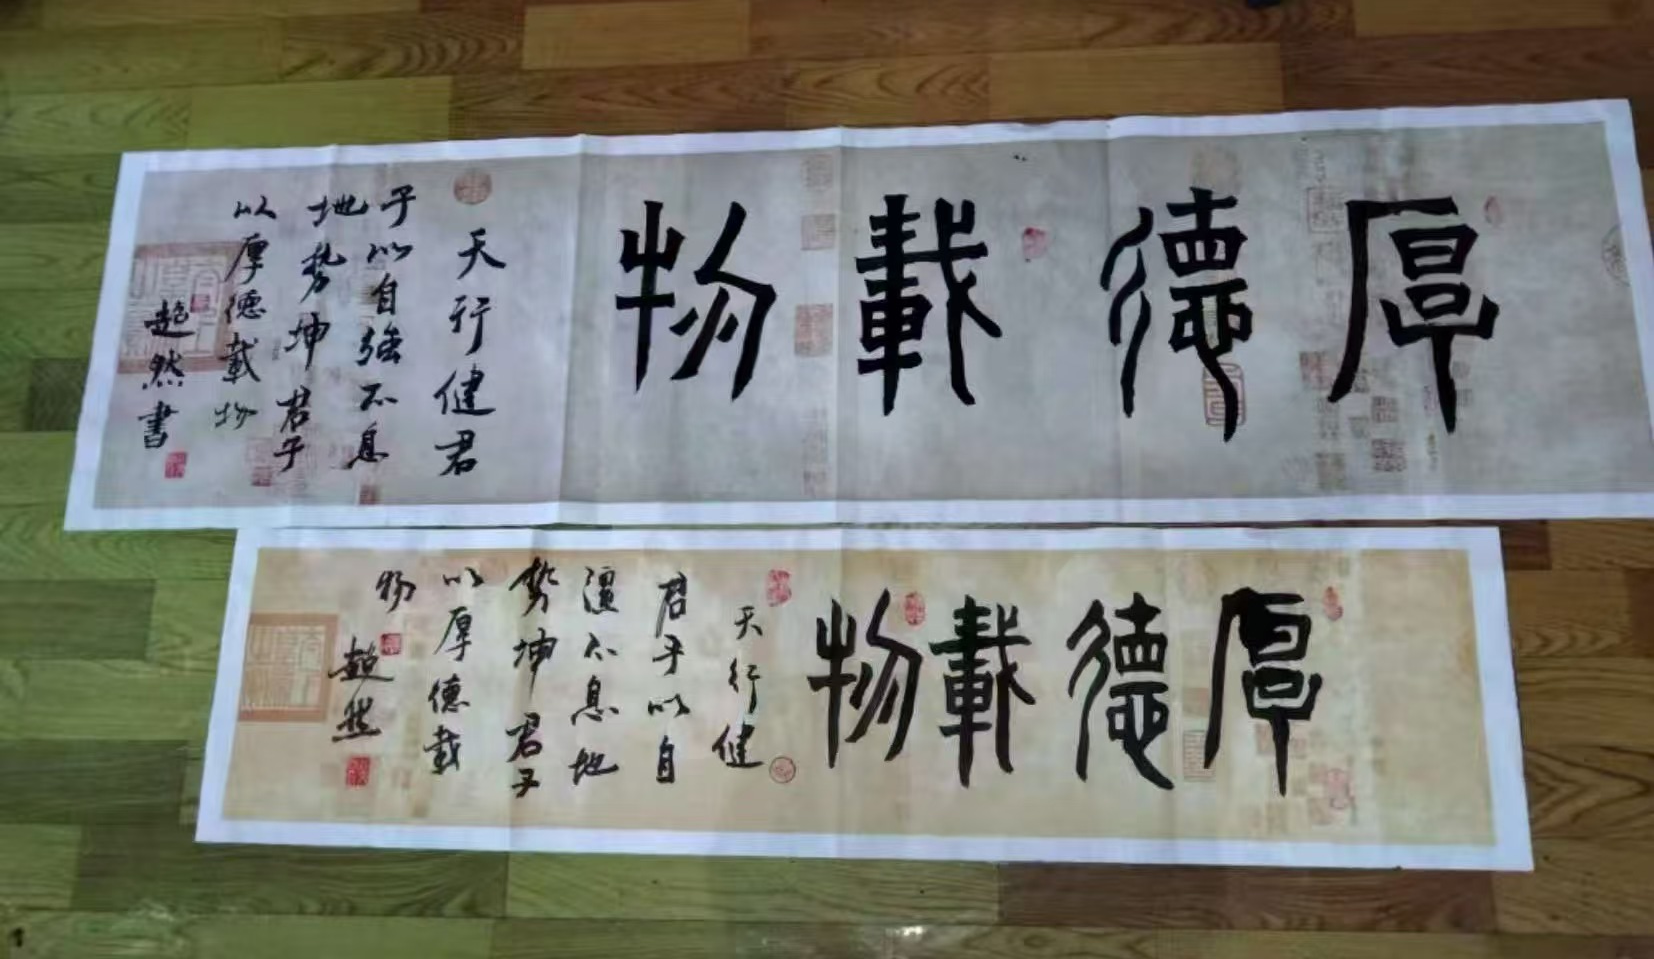 厚德載物
天行健君
子以自強不息
地势坤君子
以厚德載物
超然書
厚德載物
天行健
君子以自
彊不息地
势坤君子
以厚德載
物
超然